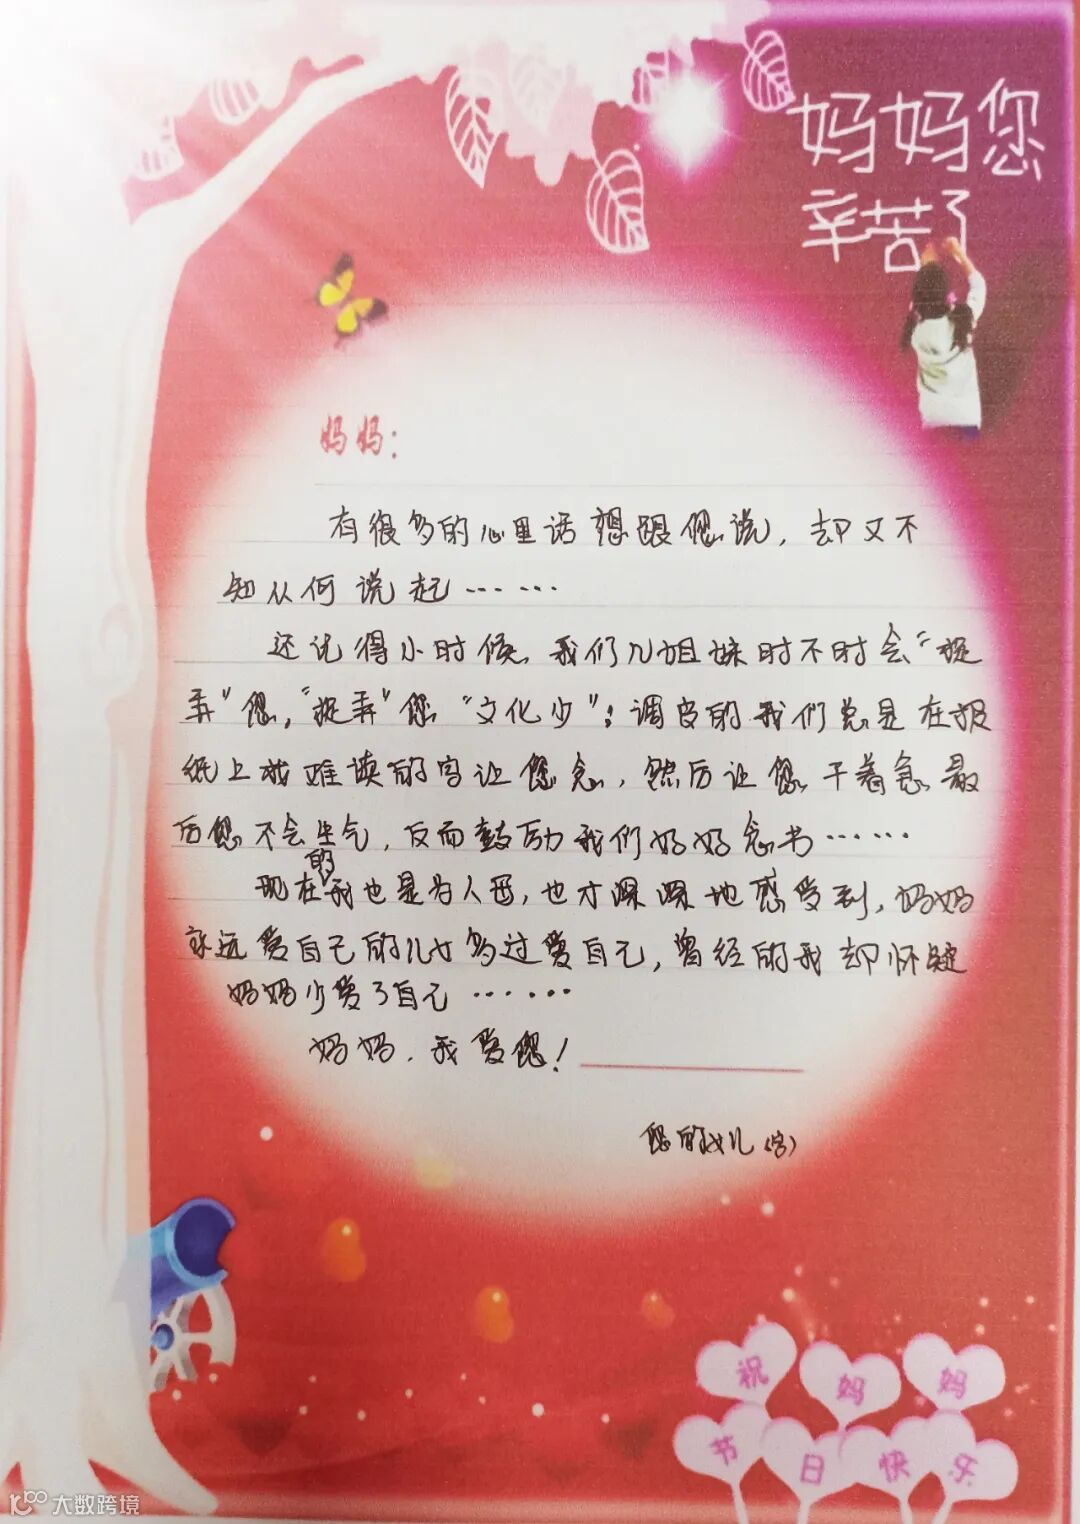 妈妈您
辛苦了
妈妈：
有很多的心里话想跟您说，却又不
知从何说起……
还记得小时候，我们几姐妹时不时会“捉
弄”您，“捉弄”您“文化少”；调皮的我们总是在报
纸上找难读的字让您念，然后让您干着急，最
后您不会生气，反而鼓励我们好好念书……
现在的我也是为人母，也才深深地感受到，妈妈
永远爱自己的儿女多过爱自己，曾经的我却怀疑
妈妈少爱了自己……
妈妈，我爱您！
您的女儿
祝妈妈
节日快乐
大数跨境